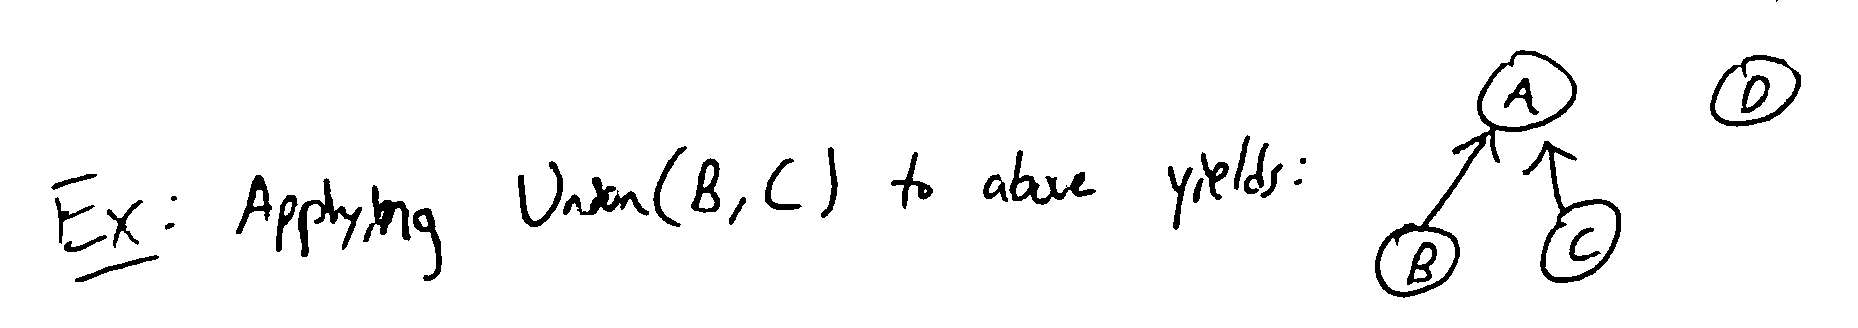 Ex: Applying Union(B, C) to above yields:
A
D
B
C